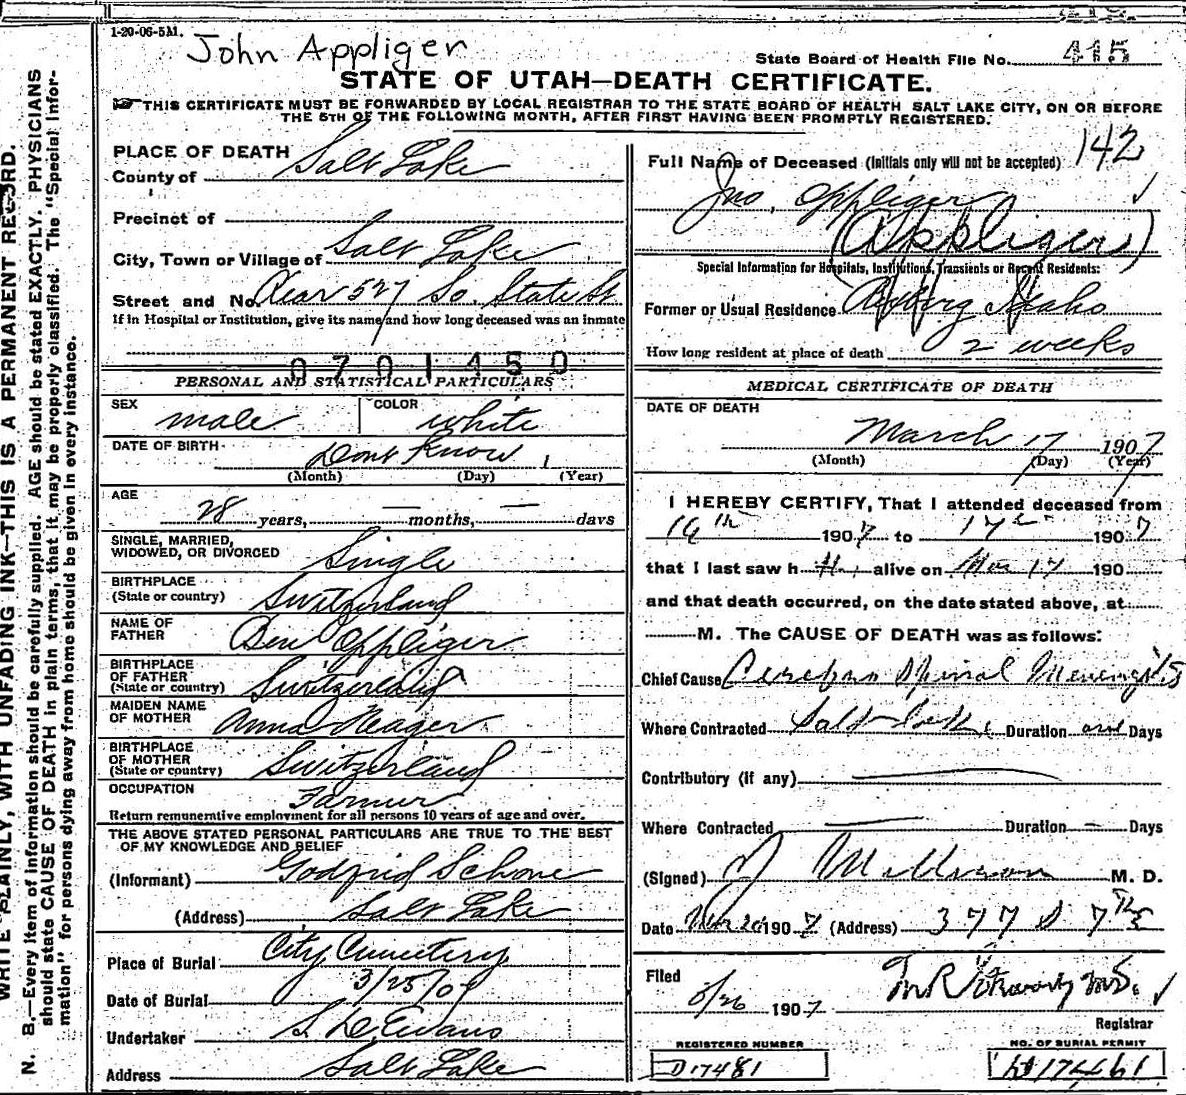 1-20-06-5M.
John Appliger
State Board of Health File No. 415
STATE OF UTAH—DEATH CERTIFICATE.
THIS CERTIFICATE MUST BE FORWARDED BY LOCAL REGISTRAR TO THE STATE BOARD OF HEALTH SALT LAKE CITY, ON OR BEFORE
THE 5TH OF THE FOLLOWING MONTH, AFTER FIRST HAVING BEEN PROMPTLY REGISTERED.
PLACE OF DEATH
County of Salt Lake
Precinct of
City, Town or Village of Salt Lake
Street and No. Rear 527 So. State St
If in Hospital or Institution, give its name and how long deceased was an inmate
0701450
PERSONAL AND STATISTICAL PARTICULARS
SEX male COLOR white
DATE OF BIRTH Dont Know
(Month) (Day) (Year)
AGE
28 years, — months, — days
SINGLE, MARRIED,
WIDOWED, OR DIVORCED Single
BIRTHPLACE
(State or country) Switzerland
NAME OF
FATHER Ben Oppliger
BIRTHPLACE
OF FATHER
(State or country) Switzerland
MAIDEN NAME
OF MOTHER Anna Neager
BIRTHPLACE
OF MOTHER
(State or country) Switzerland
OCCUPATION Farmer
Return remunerative employment for all persons 10 years of age and over.
THE ABOVE STATED PERSONAL PARTICULARS ARE TRUE TO THE BEST
OF MY KNOWLEDGE AND BELIEF
(Informant) Godfrid Schone
(Address) Salt Lake
Place of Burial City Cemetery
Date of Burial 3/25/07
Undertaker S. D. Evans
Address Salt Lake
142
Full Name of Deceased (Initials only will not be accepted)
Jno. Oppliger
(Appliger)
Special Information for Hospitals, Institutions, Transients or Recent Residents:
Former or Usual Residence Idaho
How long resident at place of death 2 weeks
MEDICAL CERTIFICATE OF DEATH
DATE OF DEATH
March 17 1907
(Month) (Day) (Year)
I HEREBY CERTIFY, That I attended deceased from
16th 1907 to 17th 1907
that I last saw h alive on Mar 17 190
and that death occurred, on the date stated above, at
M. The CAUSE OF DEATH was as follows:
Chief Cause Cerebro Spinal Menengitis
Where Contracted Salt Lake Duration Days
Contributory (if any)
Where Contracted Duration — Days
(Signed) M. D.
Date Mar 20 1907 (Address) 377 S 7th E
Filed
3/26 1907
Registrar
REGISTERED NUMBER
D17481
NO. OF BURIAL PERMIT
17461
WRITE PLAINLY, WITH UNFADING INK—THIS IS A PERMANENT RECORD.
N. B.—Every item of information should be carefully supplied. AGE should be stated EXACTLY. PHYSICIANS
should state CAUSE OF DEATH in plain terms, that it may be properly classified. The "Special Infor-
mation" for persons dying away from home should be given in every instance.